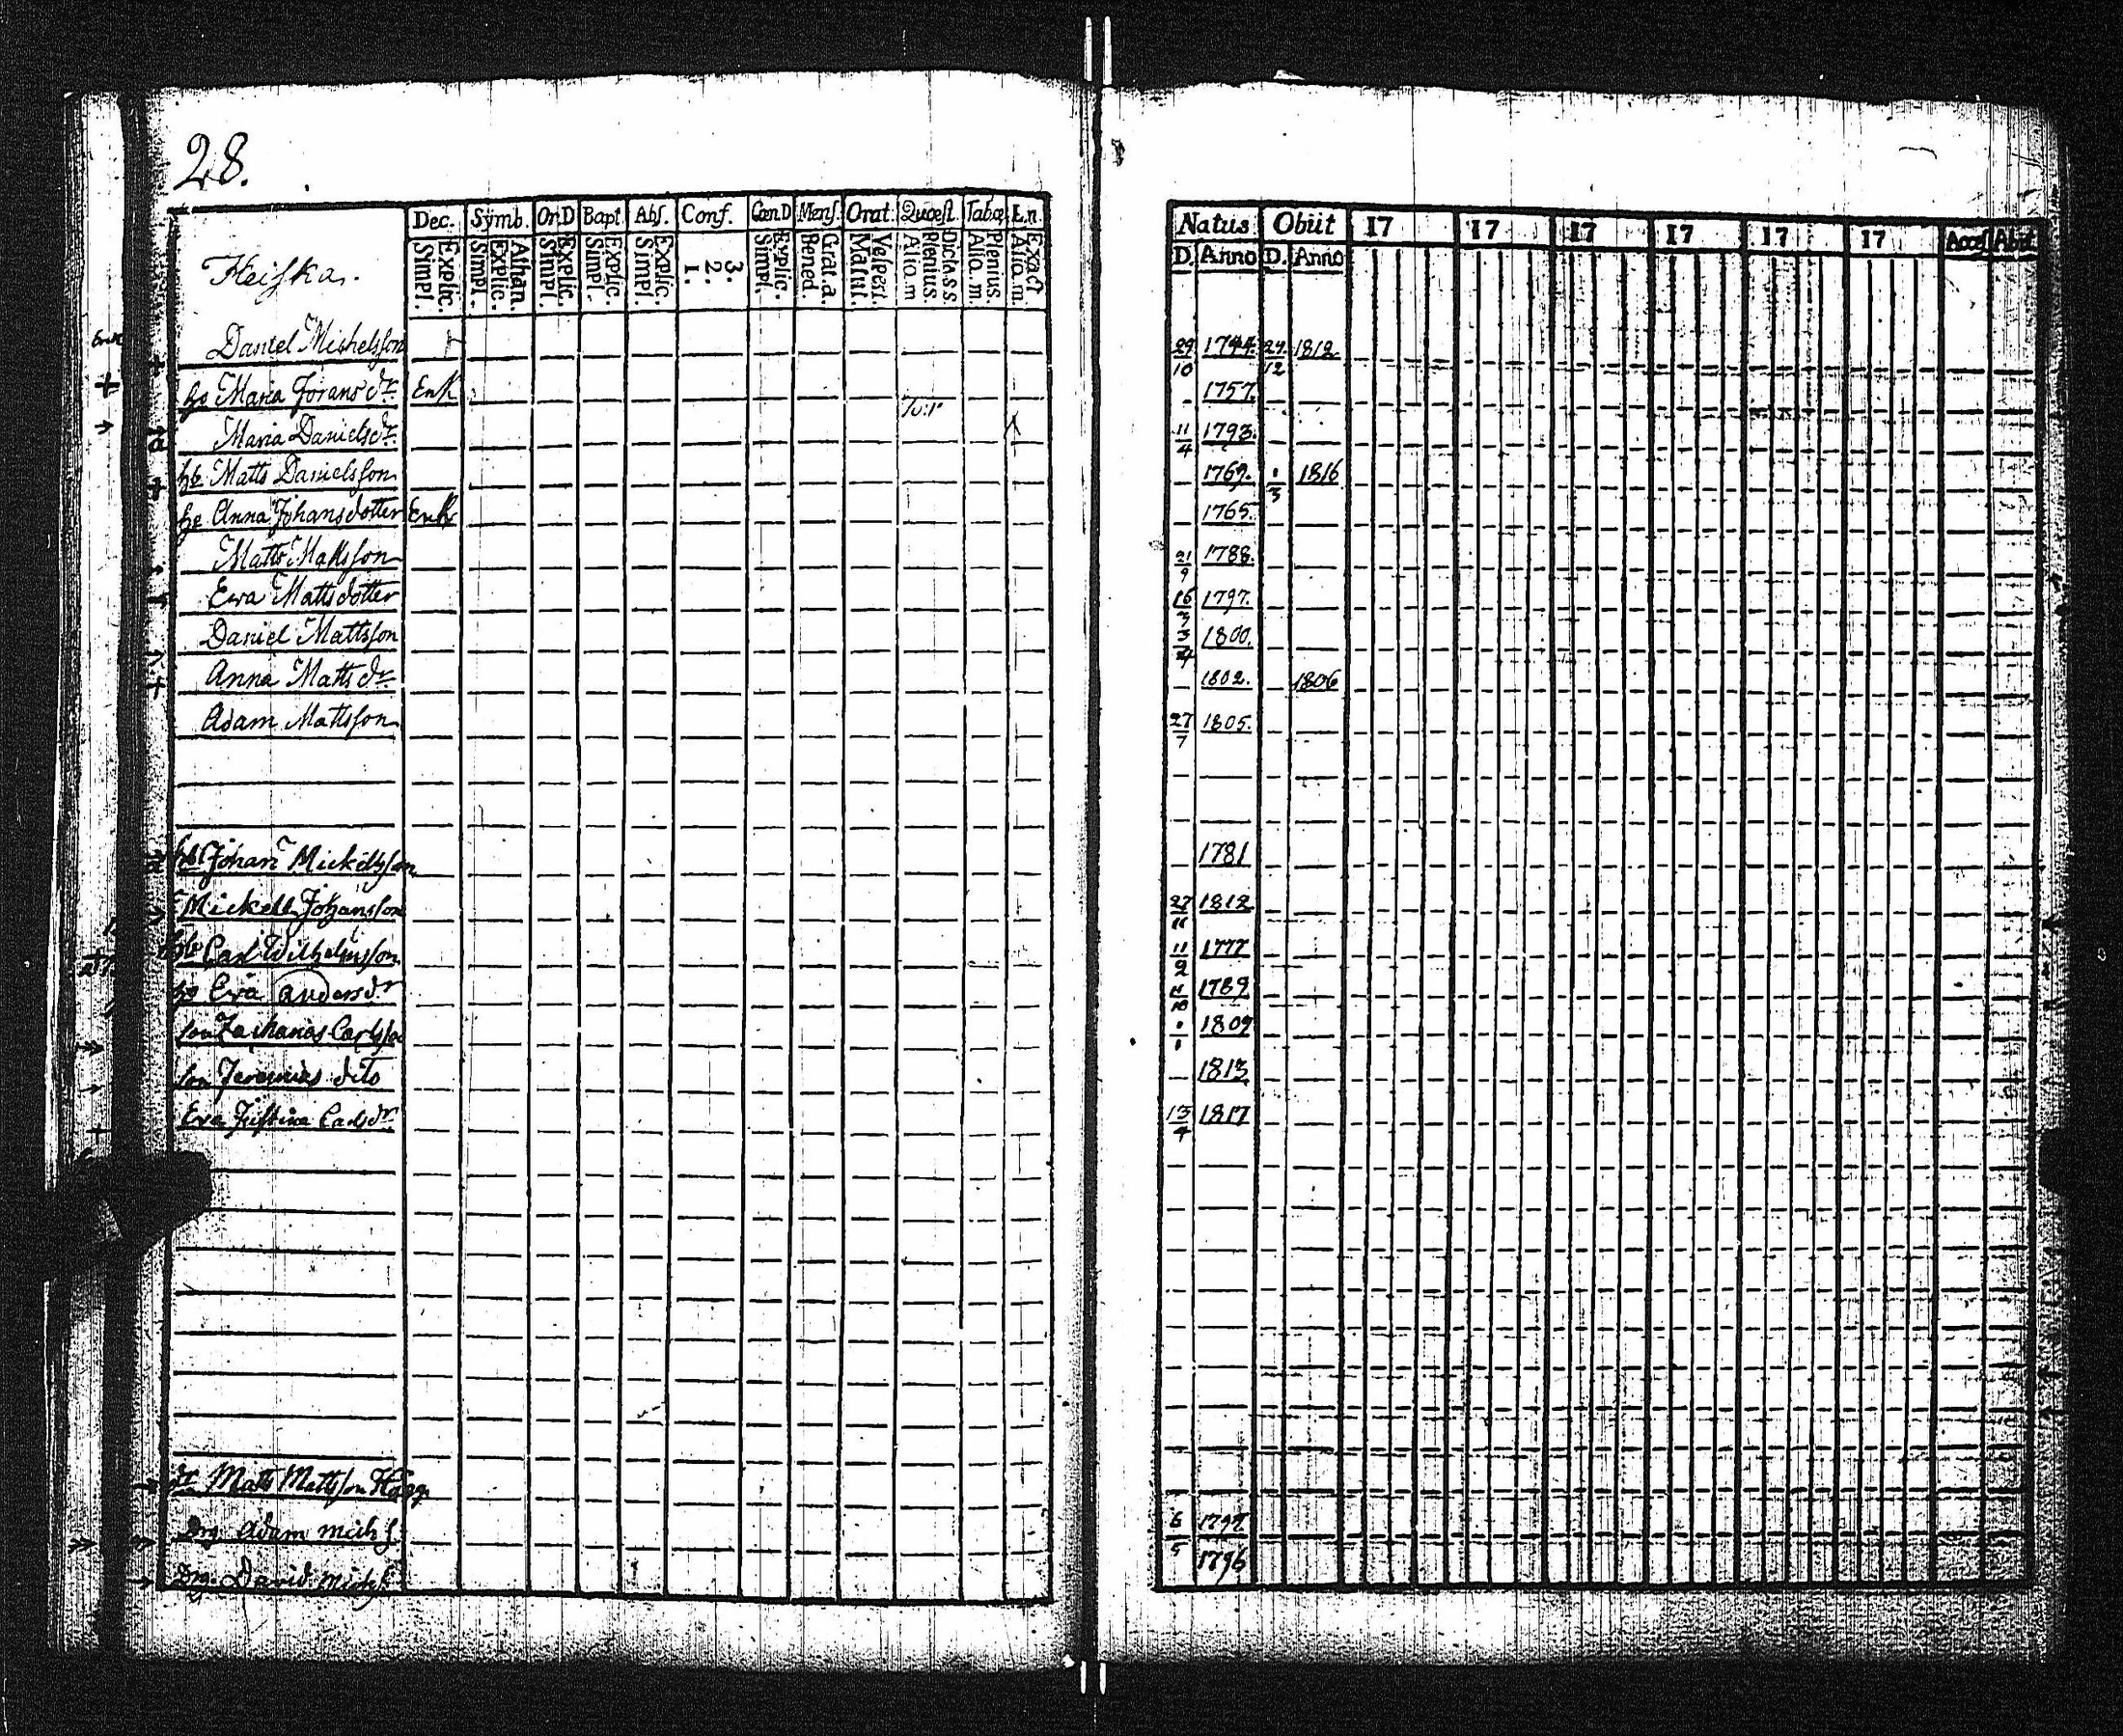 28.
Dec. Symb. Or.D Bapt. Abs. Conf. Cœn.D Mens. Orat. Quæst. Tabæ En.
Simpl. Explic. Simpl. Explic. Athan. Simpl. Explic. Simpl. Explic. Simpl. Explic. 1. 2. 3. Simpl. Explic. Bened. Grat. a. Matut. Vespert. Alio. m Plenius. Dicta ss Alio. m. Plenius. Alio. m. Exact
Heiska.
Daniel Michelsson
ho Maria Jörans dr. Enk
Maria Daniels dr.
hb Matts Danielsson
ho Anna Johansdotter Enk
Matts Mattsson
Ewa Mattsdotter
Daniel Mattsson
Anna Matts dr.
Adam Mattsson
hb Johan Mickelsson
Mickell Johansson
hb Carl Wilhelmsson
ho Eva Anders dr
son Zacharias Carlsson
son Jeremias dito
Eva Justina Carls dr
Matts Mattsson
Drg. Adam Mich s.
Drg. David Mich s.
Natus Obiit 17 17 17 17 17 17 Acces Abiit
D. Anno D. Anno
29/10 1744. 27/12 1812
1757.
11/4 1793.
1769. 1/3 1816
1765.
21/9 1788.
16/7 1797.
3/4 1800.
1802. 1806
27/7 1805.
1781
27/11 1812
11/2 1777
11/10 1789
1/1 1809
1813
13/4 1817
6/5 1797
1796